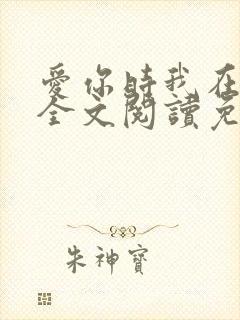 愛你時我在
全文閱讀免
朱神寶